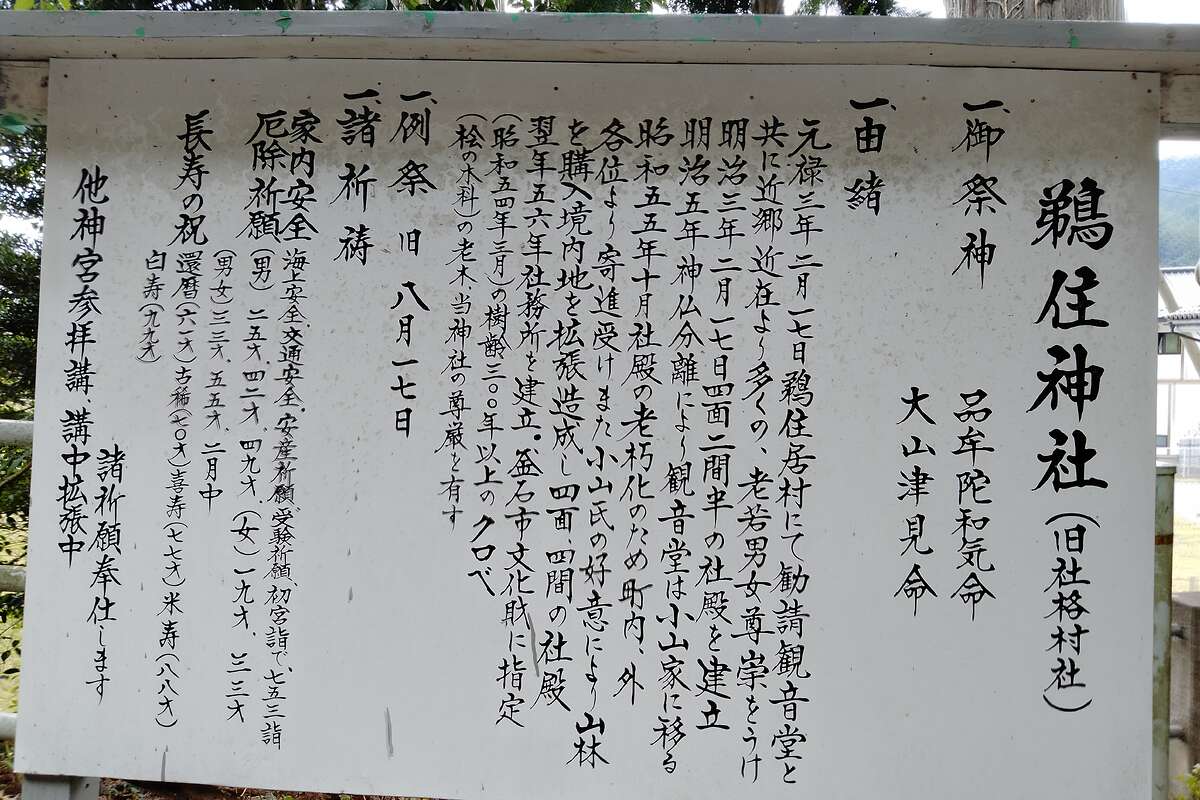 鵜住神社(旧社格村社)
一、御祭神
品牟陀和気命
大山津見命
一、由緒
元禄三年二月一七日鵜住居村にて勧請観音堂と
共に近郷近在より多くの、老若男女尊崇をうけ
明治三年二月一七日四面二間半の社殿を建立
明治五年神仏分離により観音堂は小山家に移る
昭和五五年十月社殿の老朽化のため町内、外
各位より寄進受けまた小山氏の好意により山林
を購入境内地を拡張造成し四面四間の社殿
翌年五六年社務所を建立。釜石市文化財に指定
(昭和五四年三月)の樹齢三〇〇年以上のクロベ
(桧の木科)の老木当神社の尊厳を有す
一、例祭 旧 八月一七日
一、諸祈祷
家内安全 海上安全、交通安全、安産祈願、受験祈願、初宮詣で、七五三詣
厄除祈願 (男)二五才、四二才、四九才、(女)一九才、三三才
(男女)三三才、五五才、二月中
長寿の祝 還暦(六一才)古稀(七〇才)喜寿(七七才)米寿(八八才)
白寿(九九才)
諸祈願奉仕します
他神宮参拝講 講中拡張中